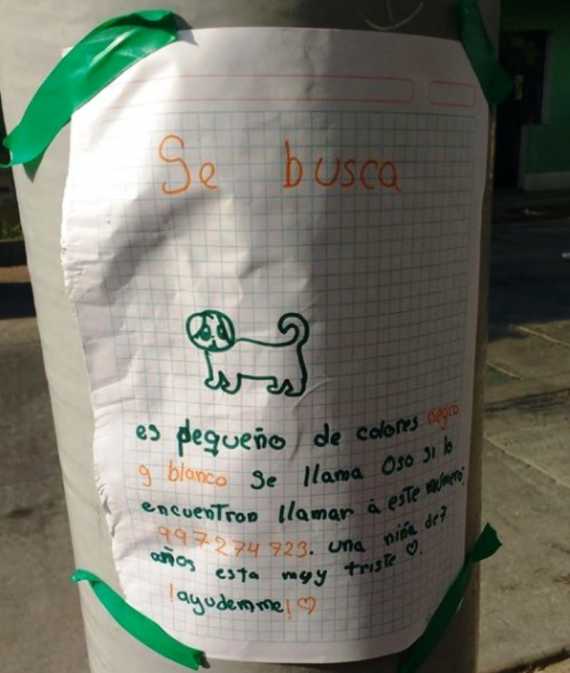 Se busca
es pequeño, de colores negro
y blanco se llama Oso si lo
encuentran llamar a este número:
997274723. una niña de 7
años esta muy triste ♡.
¡ayudemme! ♡